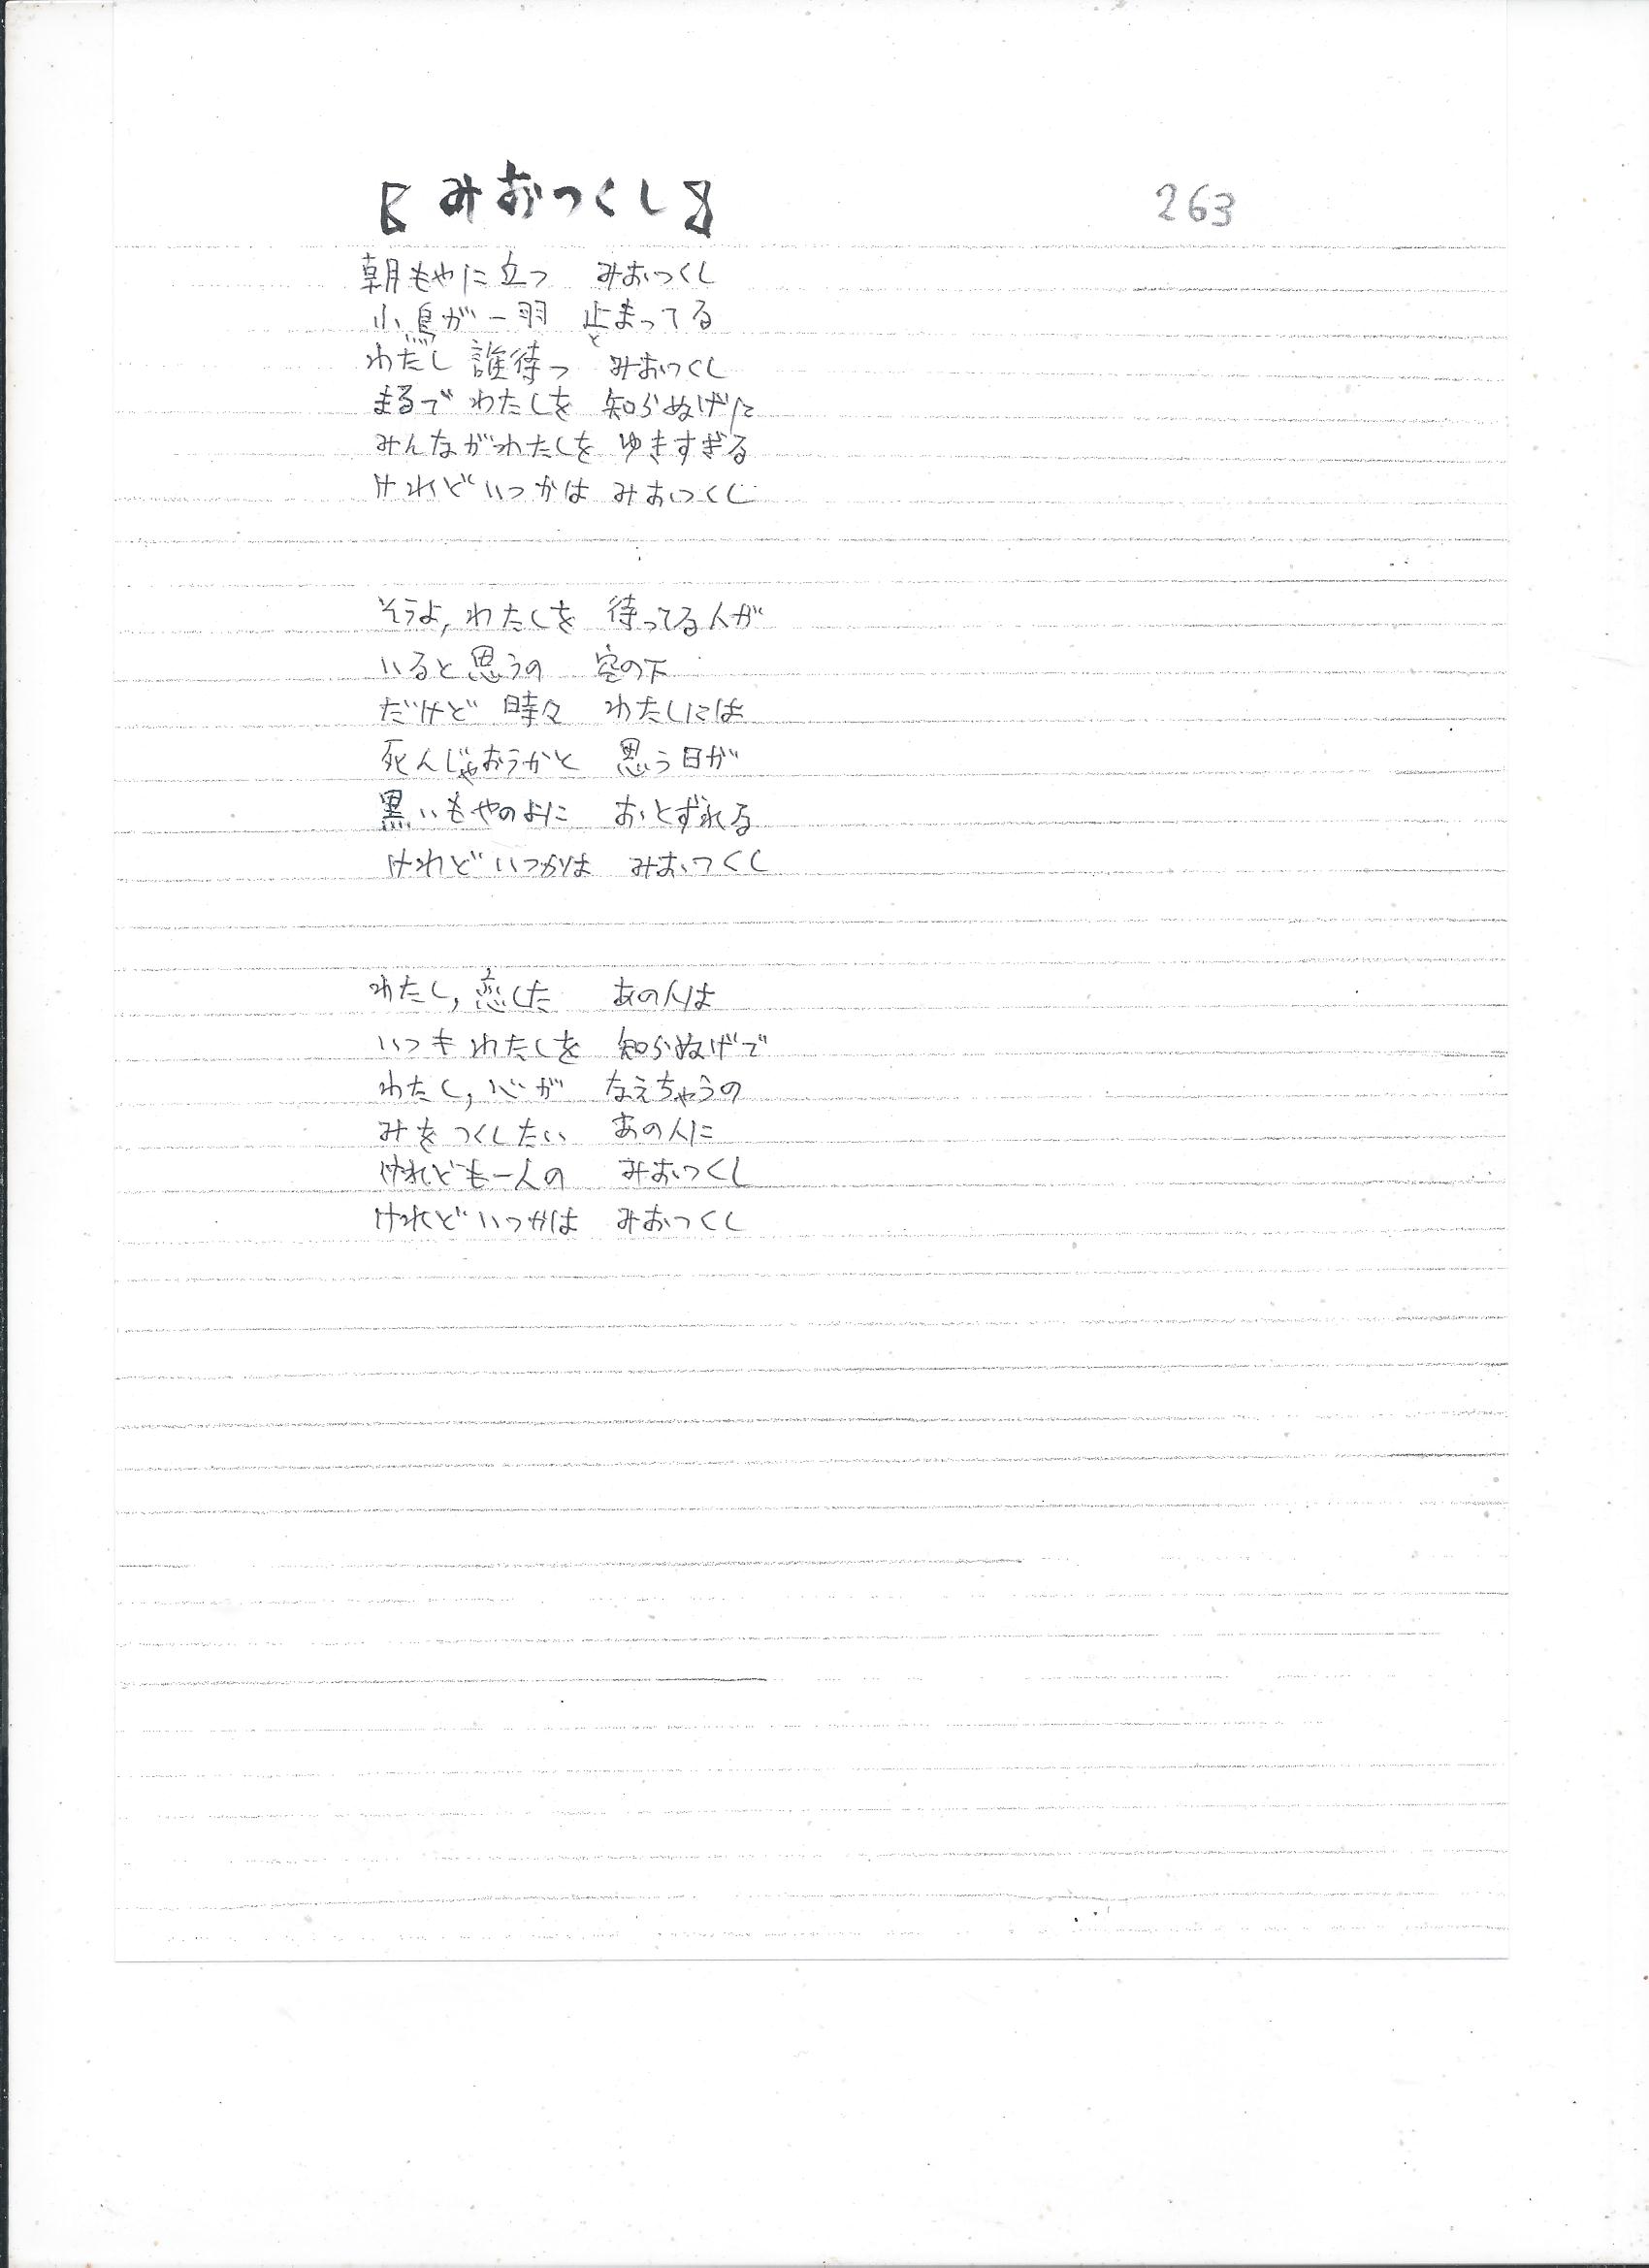 【みおつくし】 263
朝もやに立つ みおつくし
小鳥が一羽 止まってる
と
わたし 誰待つ みおつくし
まるで わたしを 知らぬげに
みんながわたしを ゆきすぎる
けれどいつかは みおつくし
そうよ,わたしを 待ってる人が
いると思うの 空の下
だけど 時々 わたしには
死んじゃおうかと 思う日が
黒いもやのよに おとずれる
けれどいつかは みおつくし
わたし,恋した あの人は
いつも わたしを 知らぬげで
わたし,心が なえちゃうの
みを つくしたい あの人に
けれども一人の みおつくし
けれどいつかは みおつくし